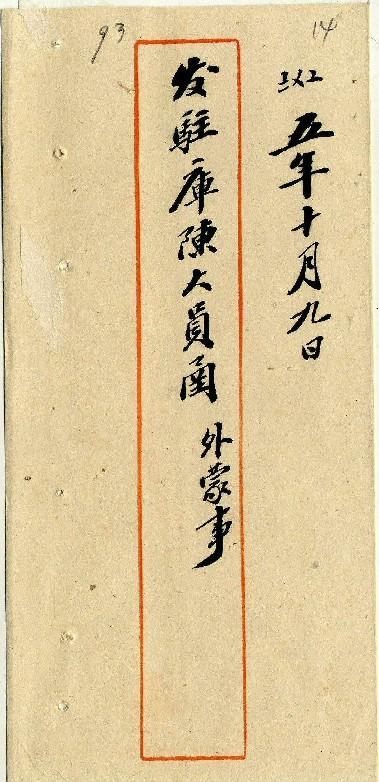 14
五年十月九日
发駐庫陳大員函
外蒙事
93